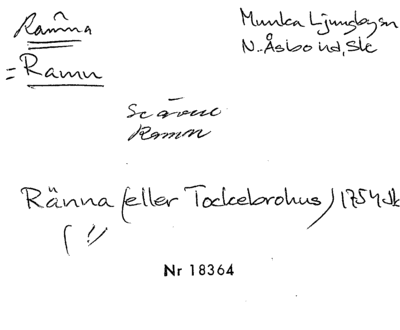 Ramna
= Ramn
Munka Ljungbygsn
N. Åsbo hd, Sk
Ramn
Ränna (eller Tockebrohus) 1754 Jb
(!!)
Nr 18364